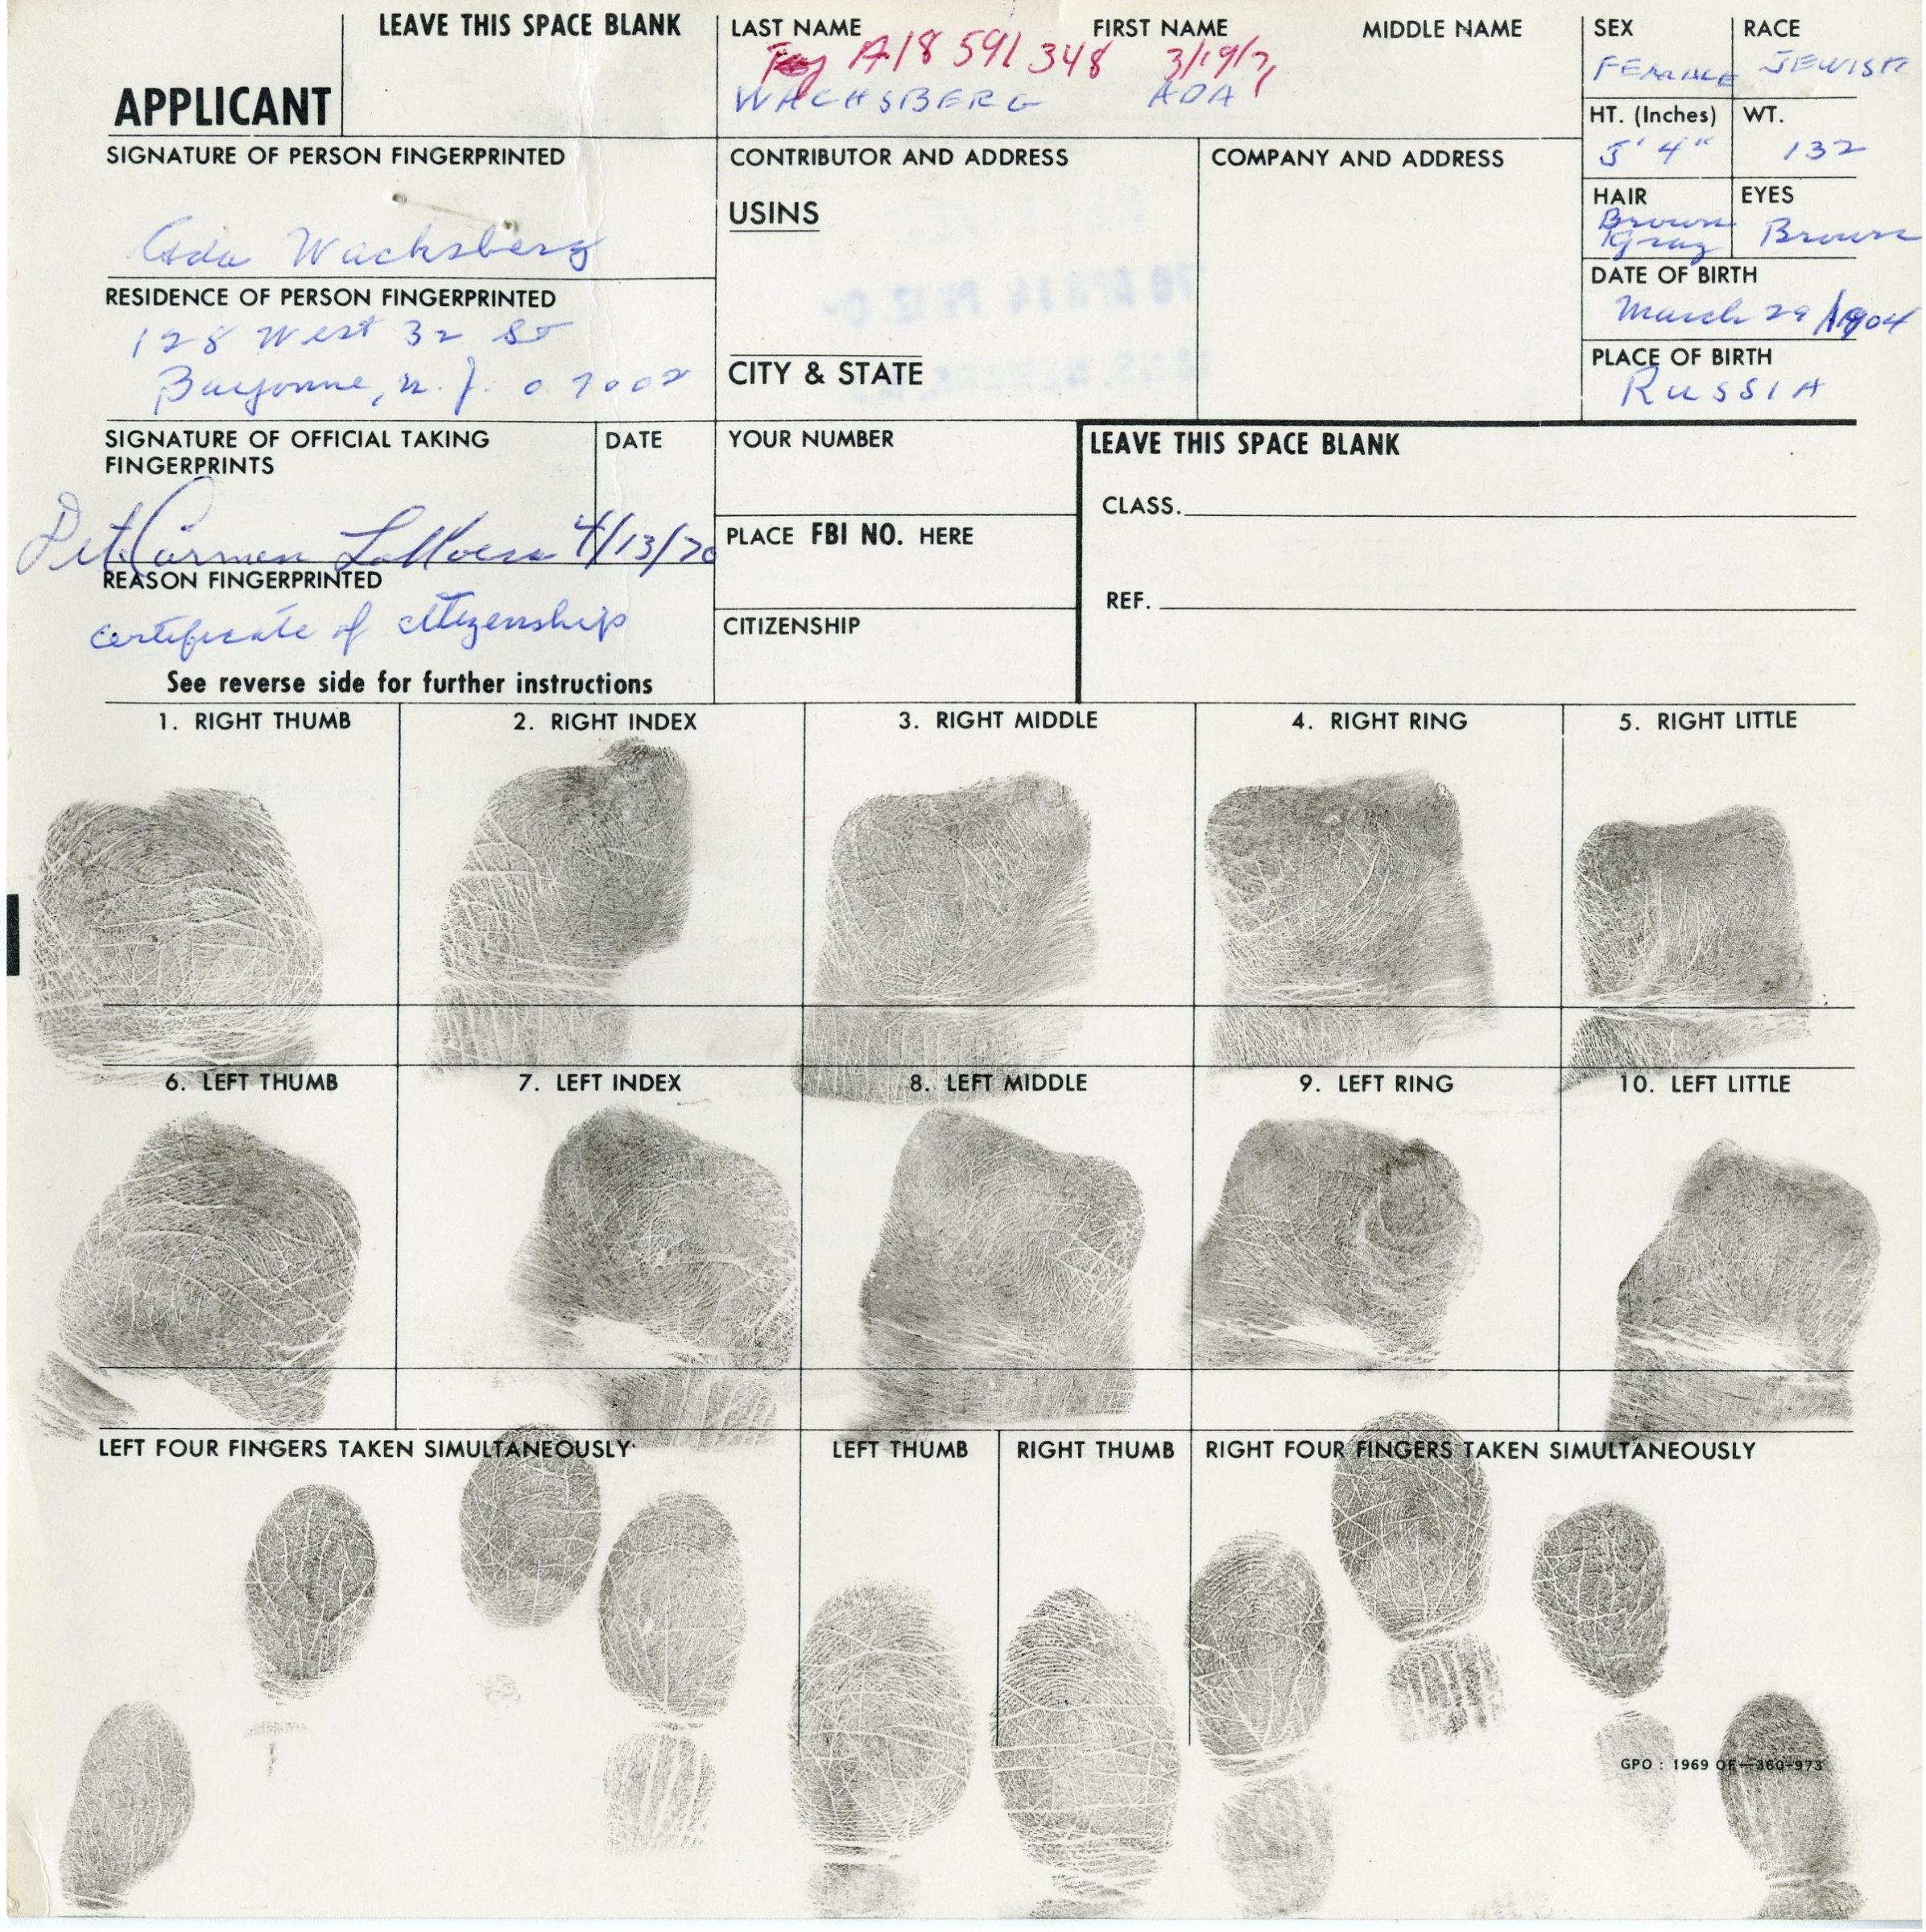 LEAVE THIS SPACE BLANK
APPLICANT
LAST NAME FIRST NAME MIDDLE NAME
A18 591 348 3/19/71
WACHSBERG ADA
SEX
FEMALE
RACE
JEWISH
HT. (Inches)
5' 4"
WT.
132
HAIR
Brown
Gray
EYES
Brown
DATE OF BIRTH
March 29 1904
PLACE OF BIRTH
RUSSIA
SIGNATURE OF PERSON FINGERPRINTED
Ada Wachsberg
RESIDENCE OF PERSON FINGERPRINTED
128 West 32 St
Bayonne, N.J. 07002
CONTRIBUTOR AND ADDRESS
USINS
CITY & STATE
COMPANY AND ADDRESS
SIGNATURE OF OFFICIAL TAKING
FINGERPRINTS
Det. Carmen
DATE
4/13/70
REASON FINGERPRINTED
certificate of citizenship
See reverse side for further instructions
YOUR NUMBER
PLACE FBI NO. HERE
CITIZENSHIP
LEAVE THIS SPACE BLANK
CLASS.
REF.
1. RIGHT THUMB
2. RIGHT INDEX
3. RIGHT MIDDLE
4. RIGHT RING
5. RIGHT LITTLE
6. LEFT THUMB
7. LEFT INDEX
8. LEFT MIDDLE
9. LEFT RING
10. LEFT LITTLE
LEFT FOUR FINGERS TAKEN SIMULTANEOUSLY
LEFT THUMB
RIGHT THUMB
RIGHT FOUR FINGERS TAKEN SIMULTANEOUSLY
GPO : 1969 OF—360-973